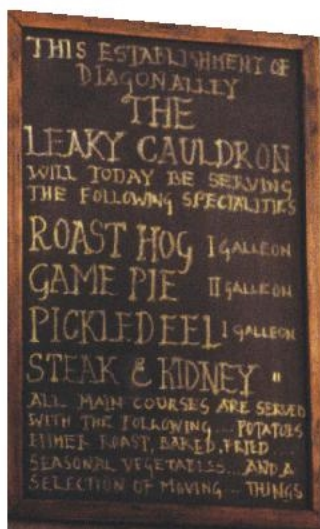 THIS ESTABLISHMENT OF
DIAGONALLEY
THE
LEAKY CAULDRON
WILL TODAY BE SERVING
THE FOLLOWING SPECIALITIES
ROAST HOG I GALLEON
GAME PIE II GALLEON
PICKLEDEEL I GALLEON
STEAK & KIDNEY "
ALL MAIN COURSES ARE SERVED
WITH THE FOLLOWING... POTATOES
EITHER ROAST, BAKED, FRIED...
SEASONAL VEGETABLES... AND A
SELECTION OF MOVING... THINGS